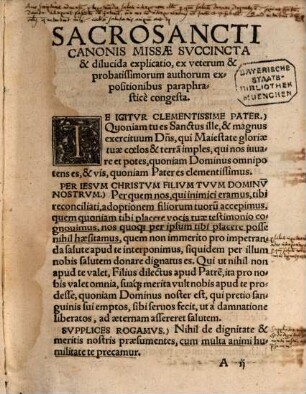 SACROSANCTI
CANONIS MISSÆ SVCCINCTA
& dilucida explicatio, ex veterum &
probatissimorum authorum ex-
positionibus paraphra-
sticè congesta.
BAYERISCHE
STAATS-
BIBLIOTHEK
MUENCHEN
TE IGITVR CLEMENTISSIME PATER,)
Quoniam tu es Sanctus ille, & magnus
exercituum Dñs, qui Maiestate gloriæ
tuæ cœlos & terrã imples, qui nos iuua-
re et potes, quoniam Dominus omnipo
tens es, & vis, quoniam Pater es clementissimus.
PER IESVM CHRISTVM FILIVM TVVM DOMINV̄
NOSTRVM.) Per quem nos, qui inimici eramus, tibi
reconciliati, adoptionem filiorum tuorũ accepimus,
quem quoniam tibi placere vocis tuæ testimonio co-
gnouimus, nos quoq; per ipsum tibi placere posse
nihil hæsitamus, quem non immerito pro impetran-
da salute apud te interponimus, siquidem per illum
nobis salutem donare dignatus es. Qui ut nihil non
apud te valet, Filius dilectus apud Patrẽ, ita pro no-
bis valet omnia, suaq; merita vult nobis apud te pro-
desse, quoniam Dominus noster est, qui pretio san-
guinis sui emptos, sibi seruos fecit, ut a damnatione
liberatos, ad æternam assereret salutem.
SVPPLICES ROGAMVS.) Nihil de dignitate &
meritis nostris præsumentes, cum multa animi hu-
militate te precamur.
A ij